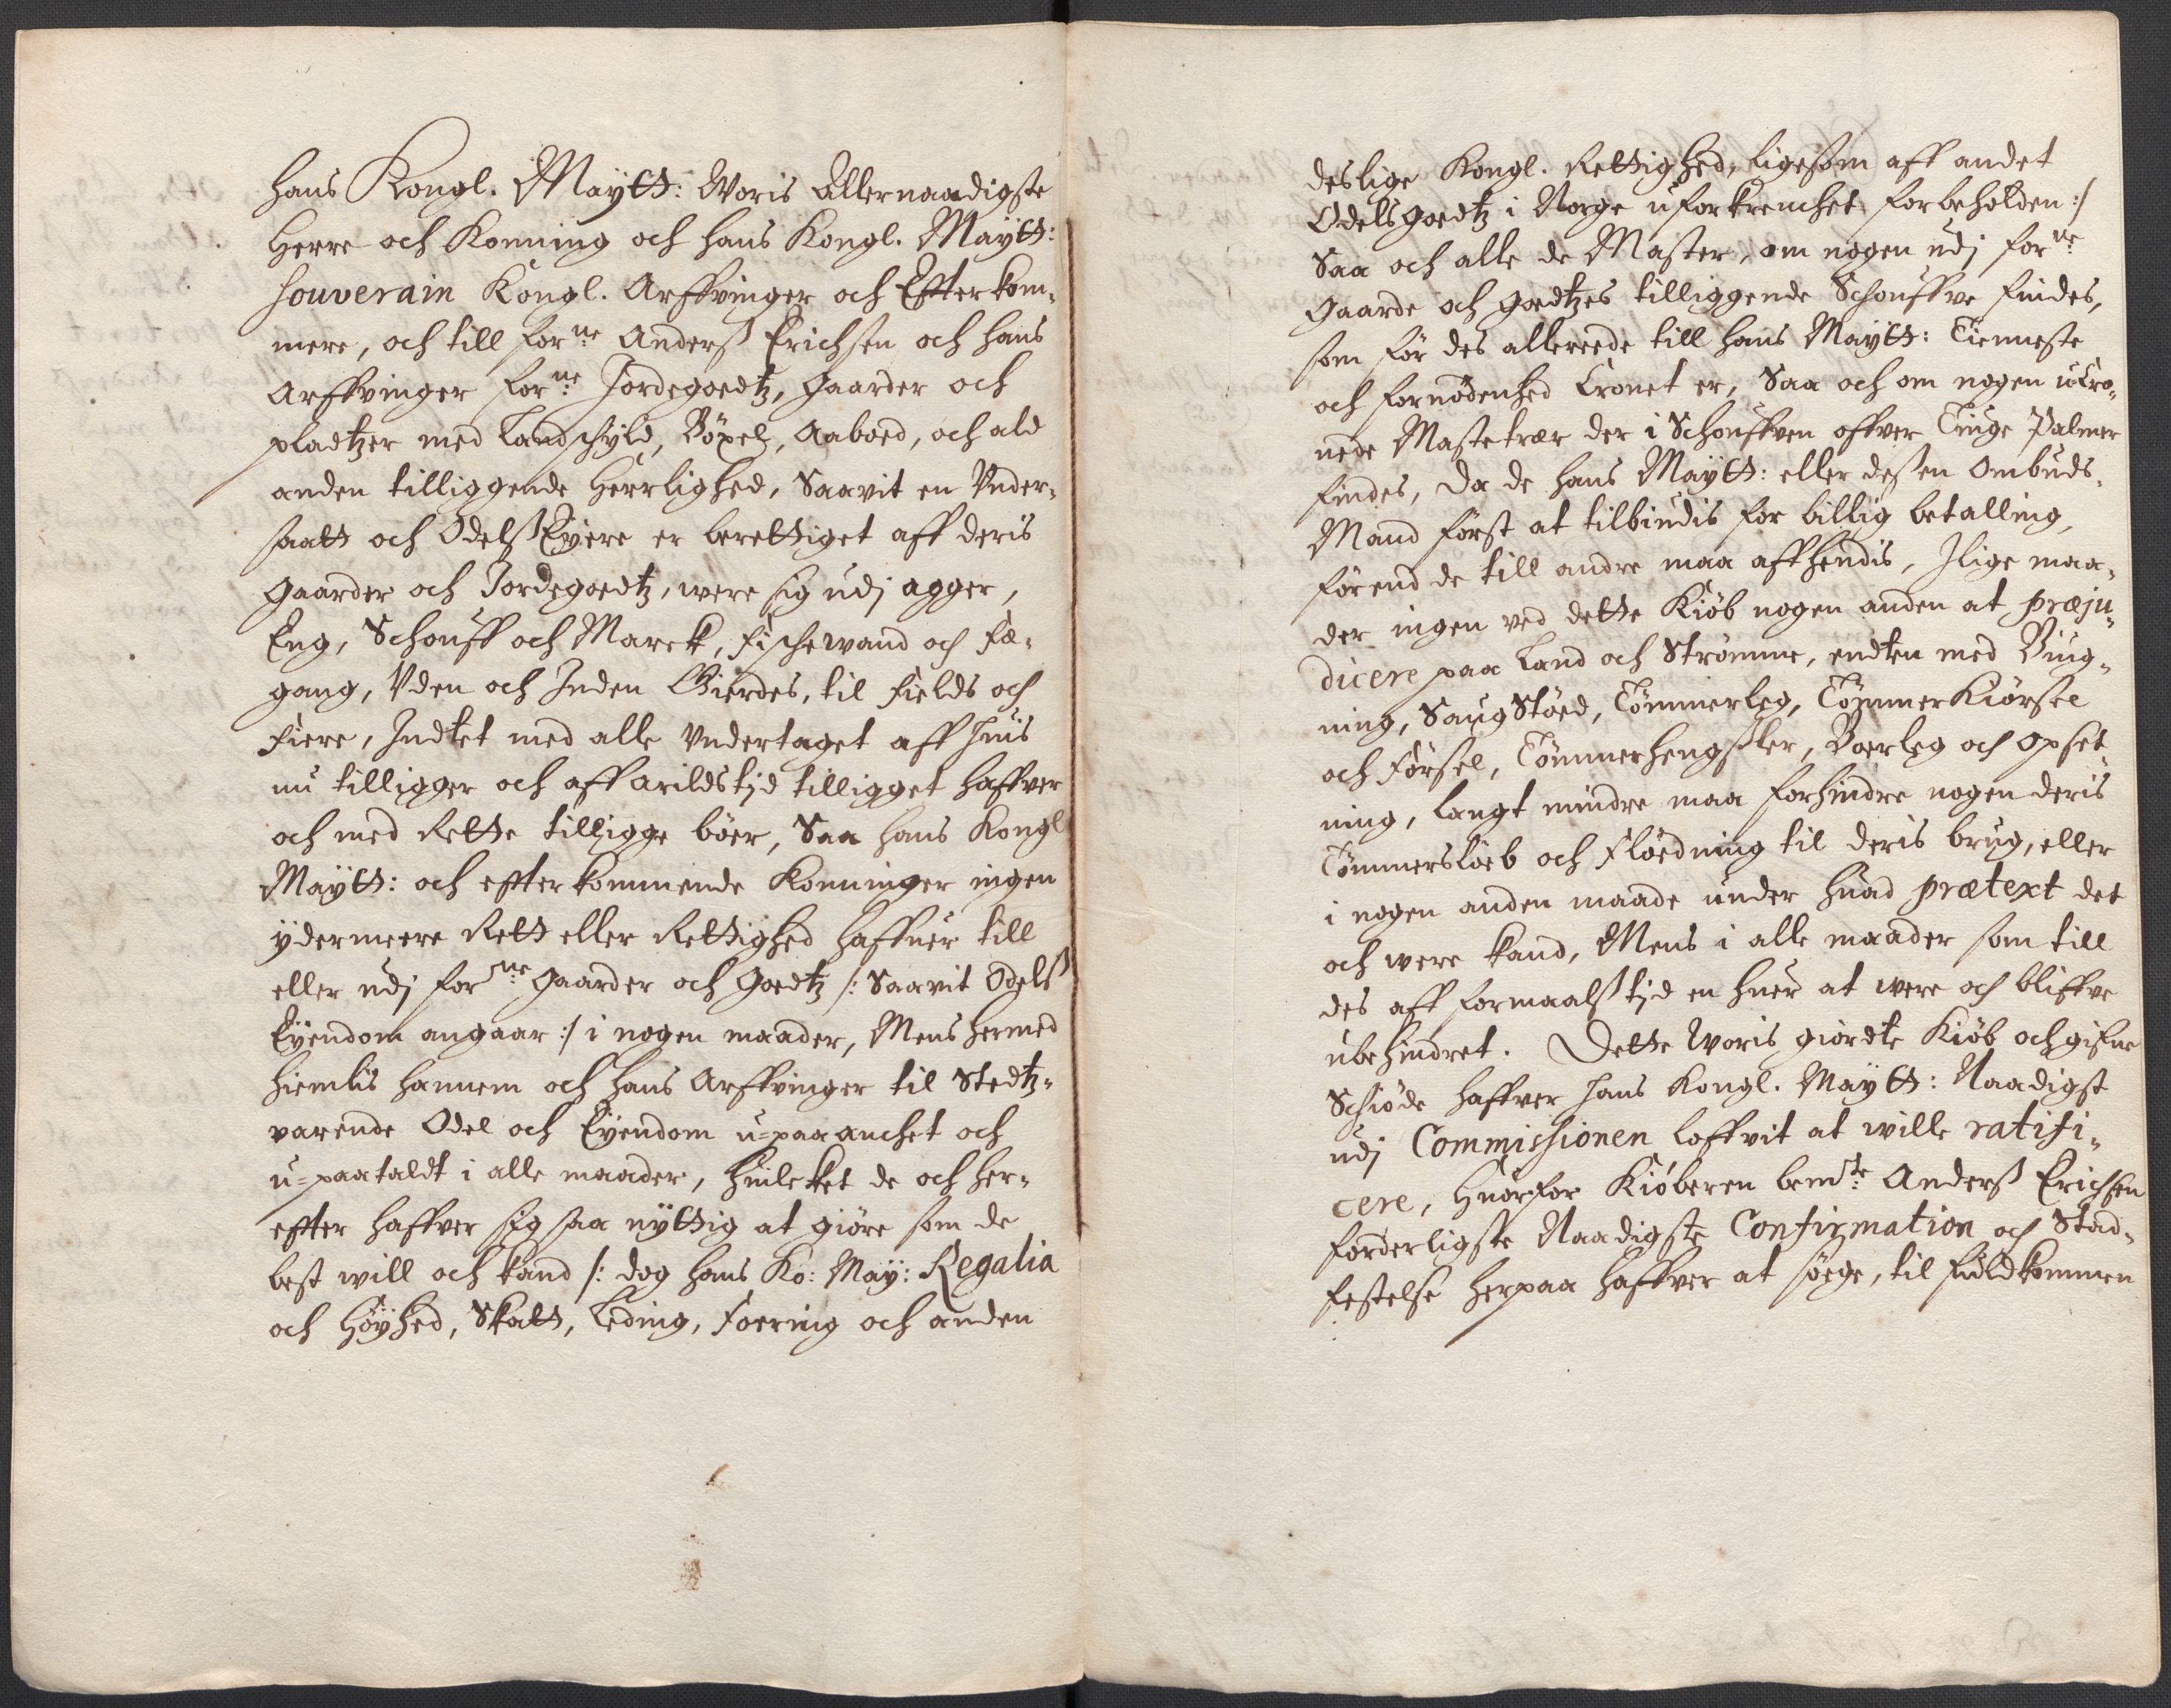 hans Kongl. Maÿtt: Woris Allernaadigste
Herre och Konning och hans Kongl. Maÿtt:
souverain Kongl. Arffvinger och Effterkom-
mere, och till forne Anderß Erichsen och hans
Arffvinger forne Jordegoedtz, Gaarder och
pladtzer med Landschyld, Böxel, Aaboed, och ald
anden tilliggende Herrlighed, Saavit en Vnder-
saatt och Odelß Eÿere er berettiget aff deris
Gaarder och Jordegoedtz, were sig udj agger,
Eng, Schouff och Marck, fischewand och fæ-
gang, Vden och Inden Gierdes, til fields och
fiere, Indtet med alle Vndertaget aff huis
nu tilligger och aff arildstjd tilligget haffver
och med Rette tilligge böer, Saa hans Kongl
Maÿtt: och effterkommende Konninger ingen
ÿdermeere Rett eller Rettighed haffuer till
eller udj forne Gaarder och Goedtz /: Saavit Odelß
Eÿendom angaar :/ i nogen maader, Mens hermed
hiemlis hannem och hans Arffvinger til Stedtz-
varende Odel och Eÿendom u=paaanchet och
u=paataldt i alle maader, huilcket de och her-
effter haffver sig saa nÿttig at giöre som de
best will och kand /: dog hans Ko: Maÿ: Regalia
och Höÿhed, Skatt, Leding, Foering och anden
deslige Kongl. Rettighed, ligesom aff andet
Odelsgoedtz i Norge uforkrenchet forbeholden :/
Saa och alle de Master, om nogen udj forne
Gaarde och Goedtzes tilliggende Schouffve findes,
som för des allereede till hans Maÿtt: Tienneste
och fornödenhed Cronet er, Saa och om nogen uCro-
nede Mastetrær der i Schouffven offver Tiuge Palmer
findes, Da de hans Maÿtt: eller deßen Ombuds-
Mand först at tilbiudis for billig betalling,
förend de till andre maa affhendis, Ilige maa-
der ingen ved dette Kiöb nogen anden at præju-
dicere paa Land och Strömme, endten med Biug-
ning, Saug Stöed, Tömmerleg, Tömmer Kiörsel
och Förßel, Tömmerhengßler, Boerleg och opset-
ning, langt mindre maa forhindre nogen deris
Tömmersloeb och Flöedning til deris brug, eller
i nogen anden maade under huad prætext det
och were kand, Mens i alle maader som till
des aff formaalß tjd en huer at were och bliffve
ubehindret. Dette Woris giordte Kiöb och gifne
Schiöde haffver hans Kongl. Maÿtt: Naadigst
udj Commissionen loffvit at wille ratifi-
cere, Huorfor Kiöberen bemte Anderß Erichsen
forderligste Naadigste Confirmation och Stad-
festelse herpaa haffver at söege, til fuldkommen